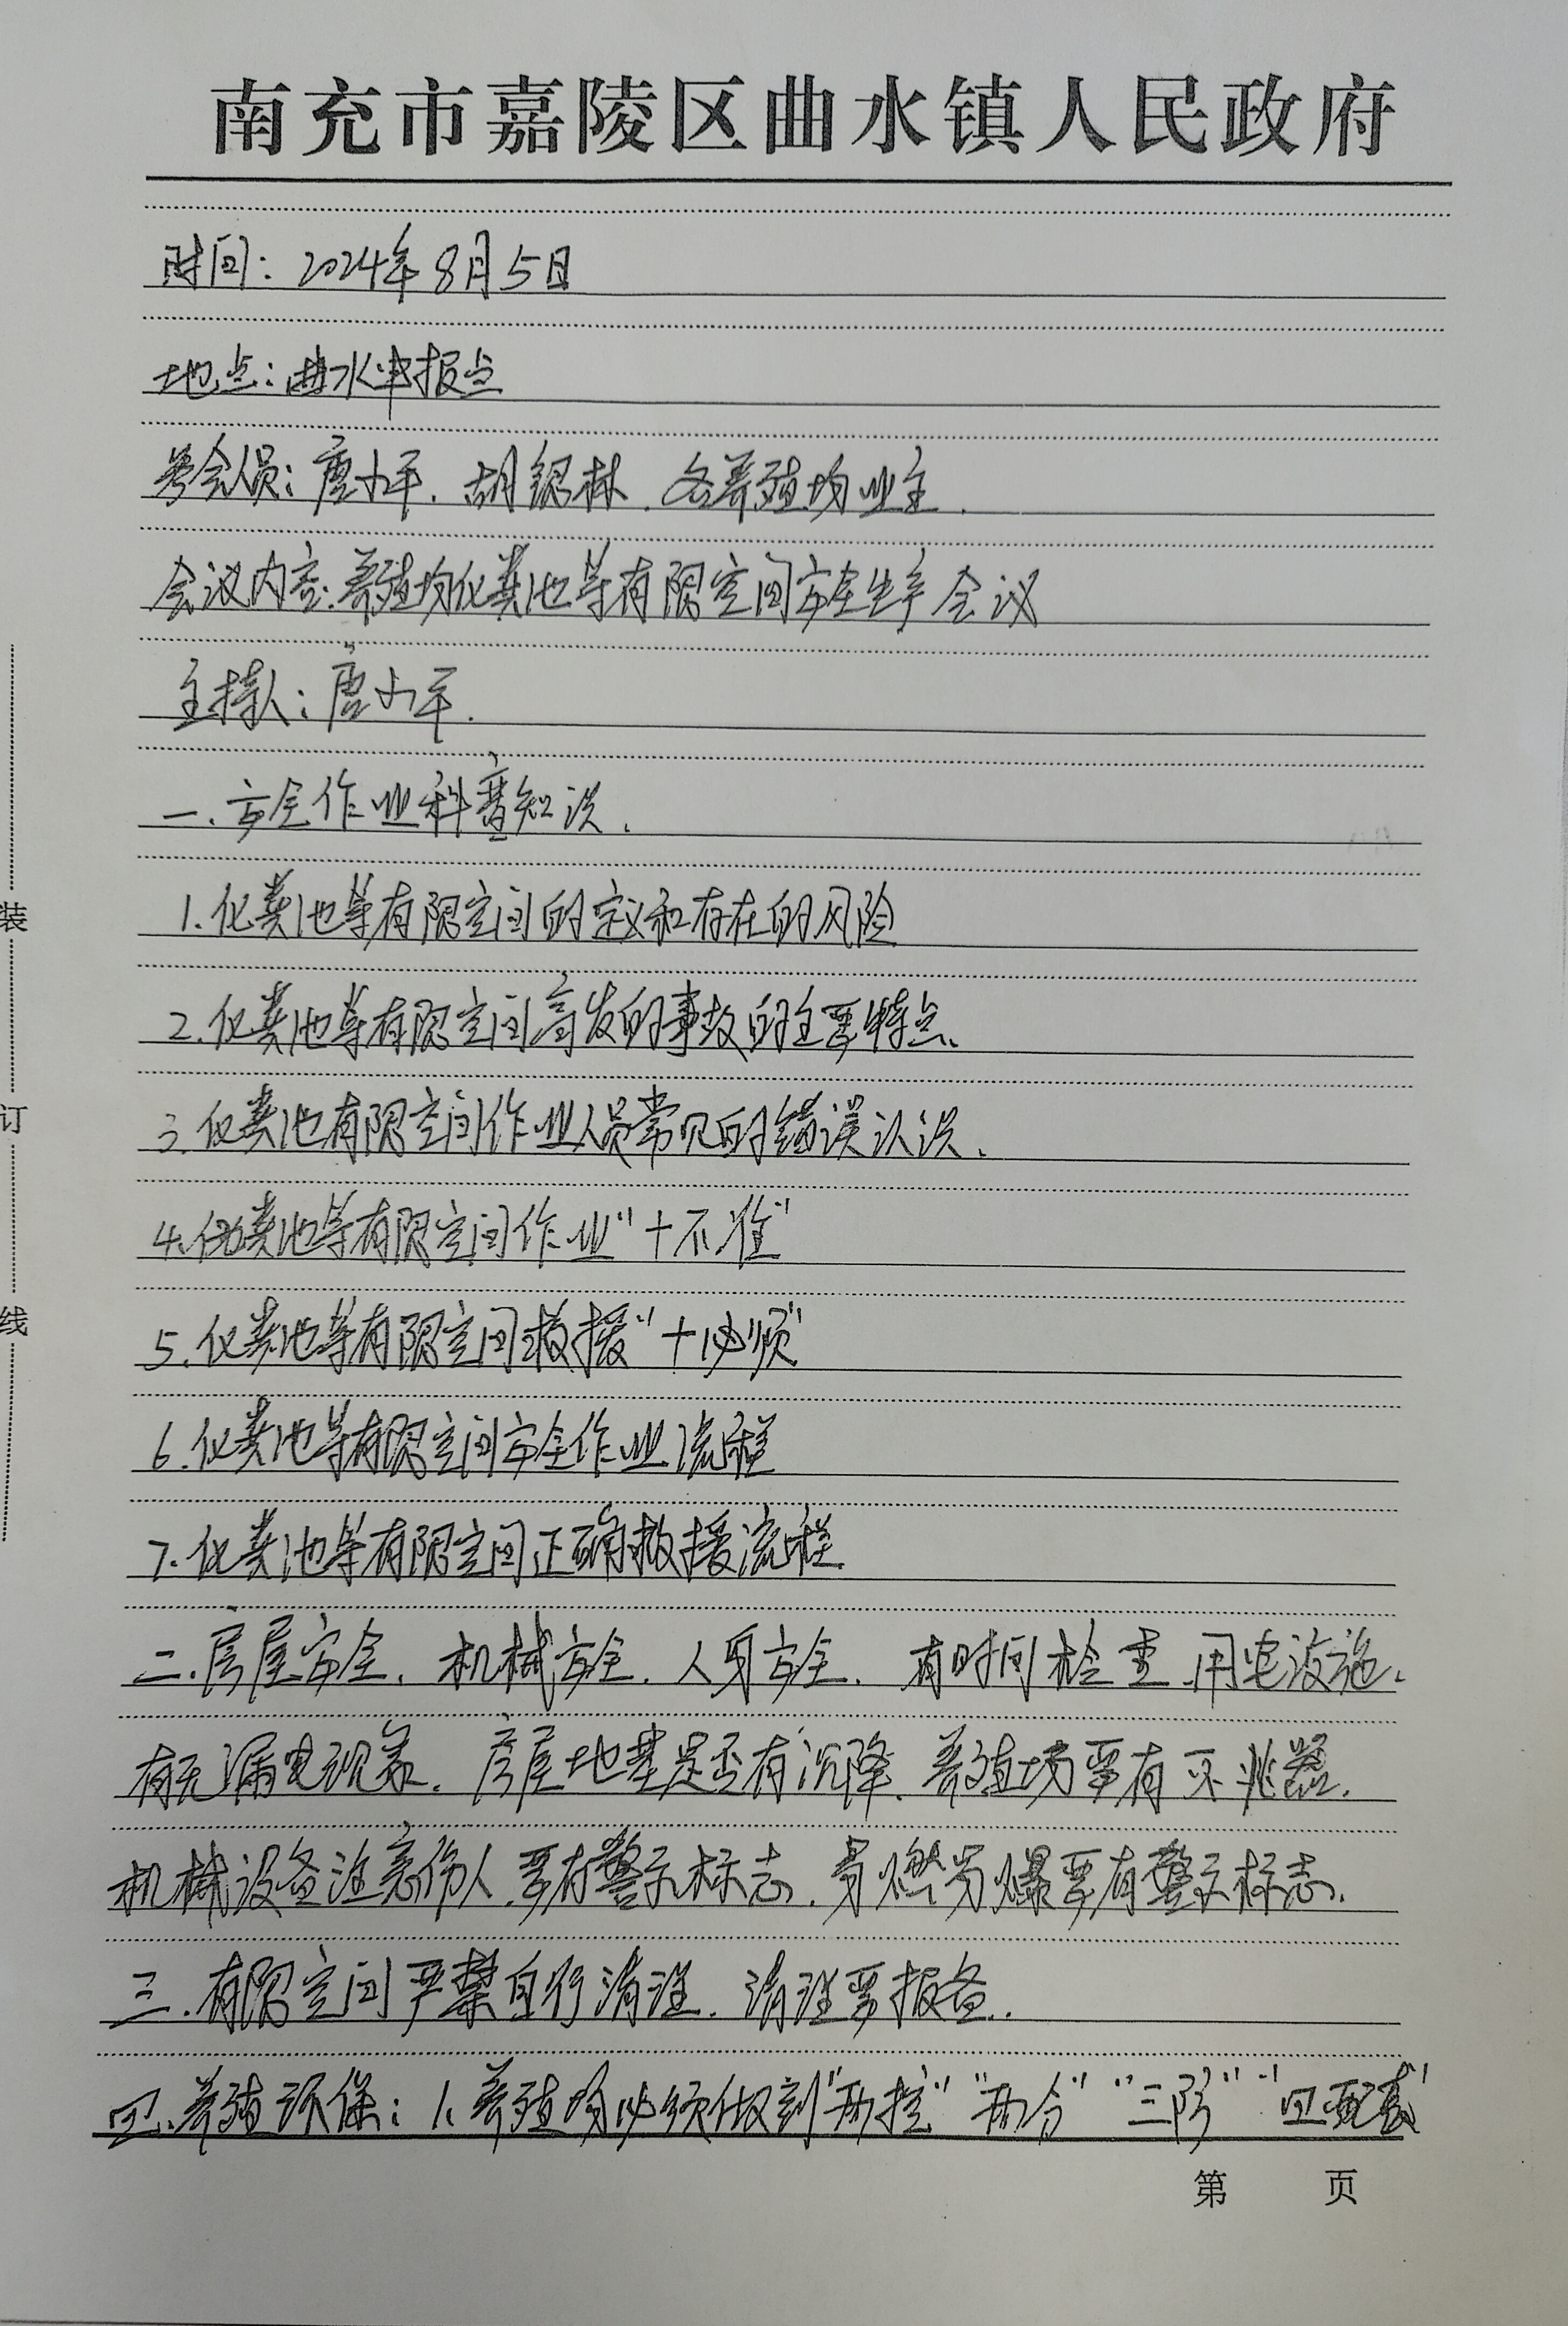 南充市嘉陵区曲水镇人民政府
时间：2024年8月5日
地点：曲水申报点
参会人员：唐小平、胡银林、各养殖场业主.
会议内容：养殖场化粪池等有限空间安全生产会议
主持人：唐小平.
一、安全作业科普知识.
1.化粪池等有限空间的定义和存在的风险
2.化粪池等有限空间高发的事故的主要特点.
3.化粪池有限空间作业人员常见的错误认识.
4.化粪池等有限空间作业"十不准"
5.化粪池等有限空间救援"十必须"
6.化粪池等有限空间安全作业流程
7.化粪池等有限空间正确救援流程.
二.房屋安全、机械安全、人身安全、有时间检查用电设施.
有无漏电现象、房屋地基是否有沉降、养殖场要有灭火器.
机械设备注意伤人要有警示标志、易燃易爆要有警示标志.
三.有限空间严禁自行清理、清理要报备.
四.养殖环保：1.养殖场必须做到"两控""两分""三防""四配套"
第 页
装
订
线